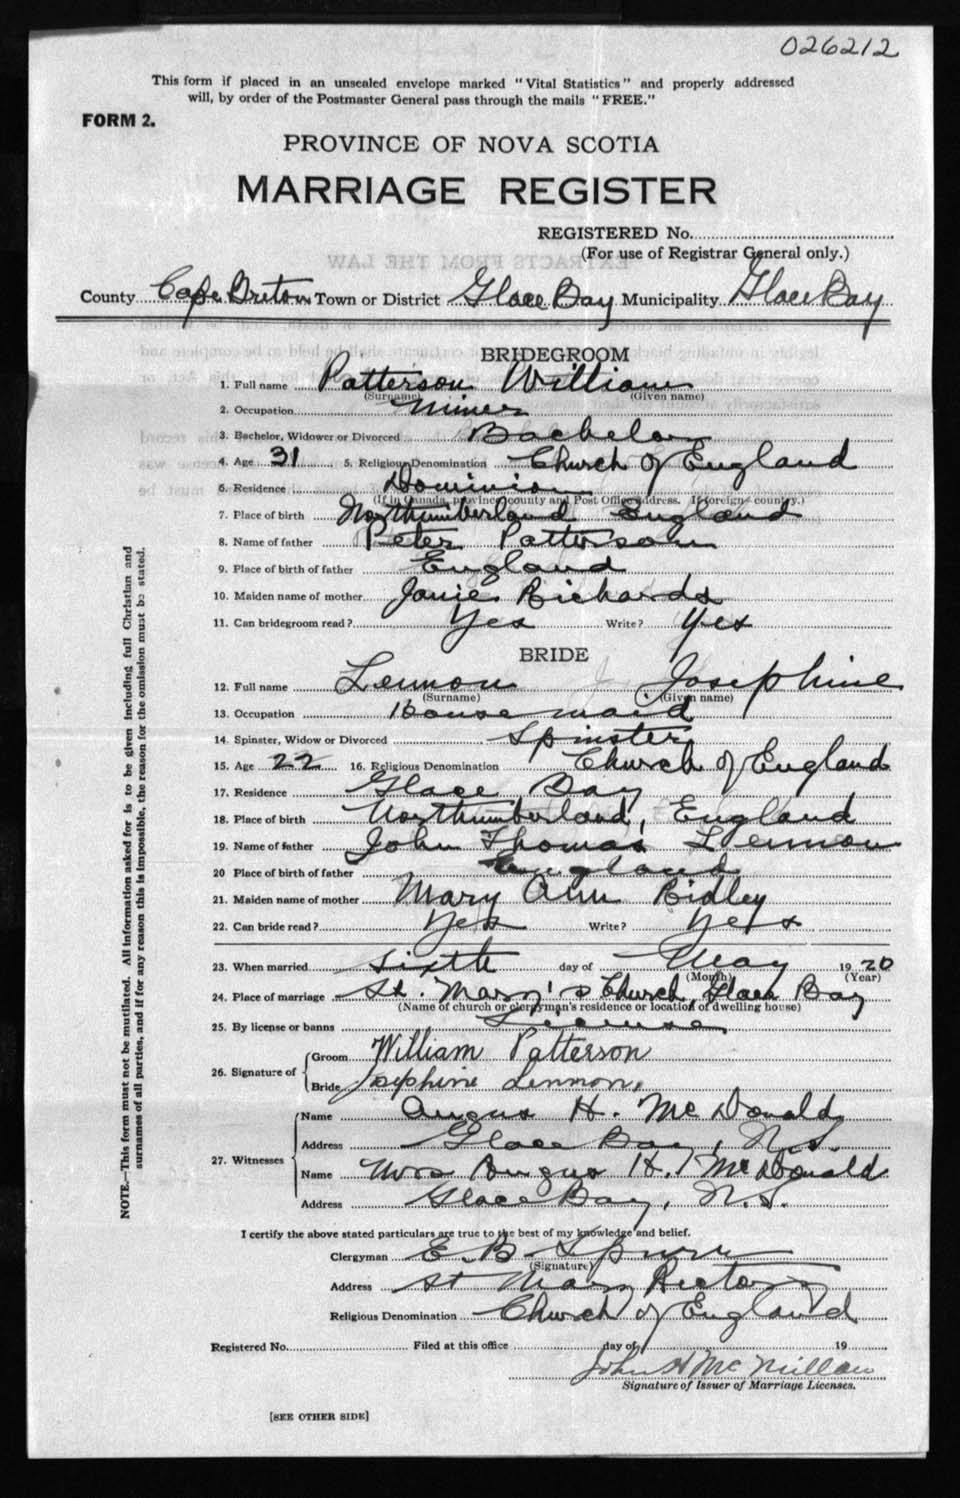 026212
This form if placed in an unsealed envelope marked "Vital Statistics" and properly addressed
will, by order of the Postmaster General pass through the mails "FREE."
FORM 2.
PROVINCE OF NOVA SCOTIA
MARRIAGE REGISTER
REGISTERED No.
(For use of Registrar General only.)
EXTRACTS FROM THE LAW
County Cape Breton Town or District Glace Bay Municipality Glace Bay
BRIDEGROOM
1. Full name Patterson William
(Surname) (Given name)
2. Occupation Miner
3. Bachelor, Widower or Divorced Bachelor
4. Age 31 5. Religious Denomination Church of England
6. Residence Dominion
(If in Canada, province, county and Post Office address. If foreign country.)
7. Place of birth Northumberland England
8. Name of father Peter Patterson
9. Place of birth of father England
10. Maiden name of mother Janie Richards
11. Can bridegroom read? Yes Write? Yes
BRIDE
12. Full name Lennon Josephine
(Surname) (Given name)
13. Occupation Housemaid
14. Spinster, Widow or Divorced Spinster
15. Age 22 16. Religious Denomination Church of England
17. Residence Glace Bay
18. Place of birth Northumberland, England
19. Name of father John Thomas Lennon
20 Place of birth of father England
21. Maiden name of mother Mary Ann Ridley
22. Can bride read? Yes Write? Yes
23. When married sixth day of May 1920
(Month) (Year)
24. Place of marriage St. Mary's Church, Glace Bay
(Name of church or clergyman's residence or location of dwelling house)
25. By license or banns License
26. Signature of Groom William Patterson
Bride Josephine Lennon.
27. Witnesses Name Angus H. McDonald
Address Glace Bay, N.S.
Name Mrs Angus H. McDonald
Address Glace Bay, N.S.
I certify the above stated particulars are true to the best of my knowledge and belief.
Clergyman E. B. Spurr
(Signature)
Address St Mary Rectory
Religious Denomination Church of England
Registered No. Filed at this office day of 19
John H McMillan
Signature of Issuer of Marriage Licenses.
[SEE OTHER SIDE]
NOTE.—This form must not be mutilated. All information asked for is to be given including full Christian and
surnames of all parties, and if for any reason this is impossible, the reason for the omission must be stated.